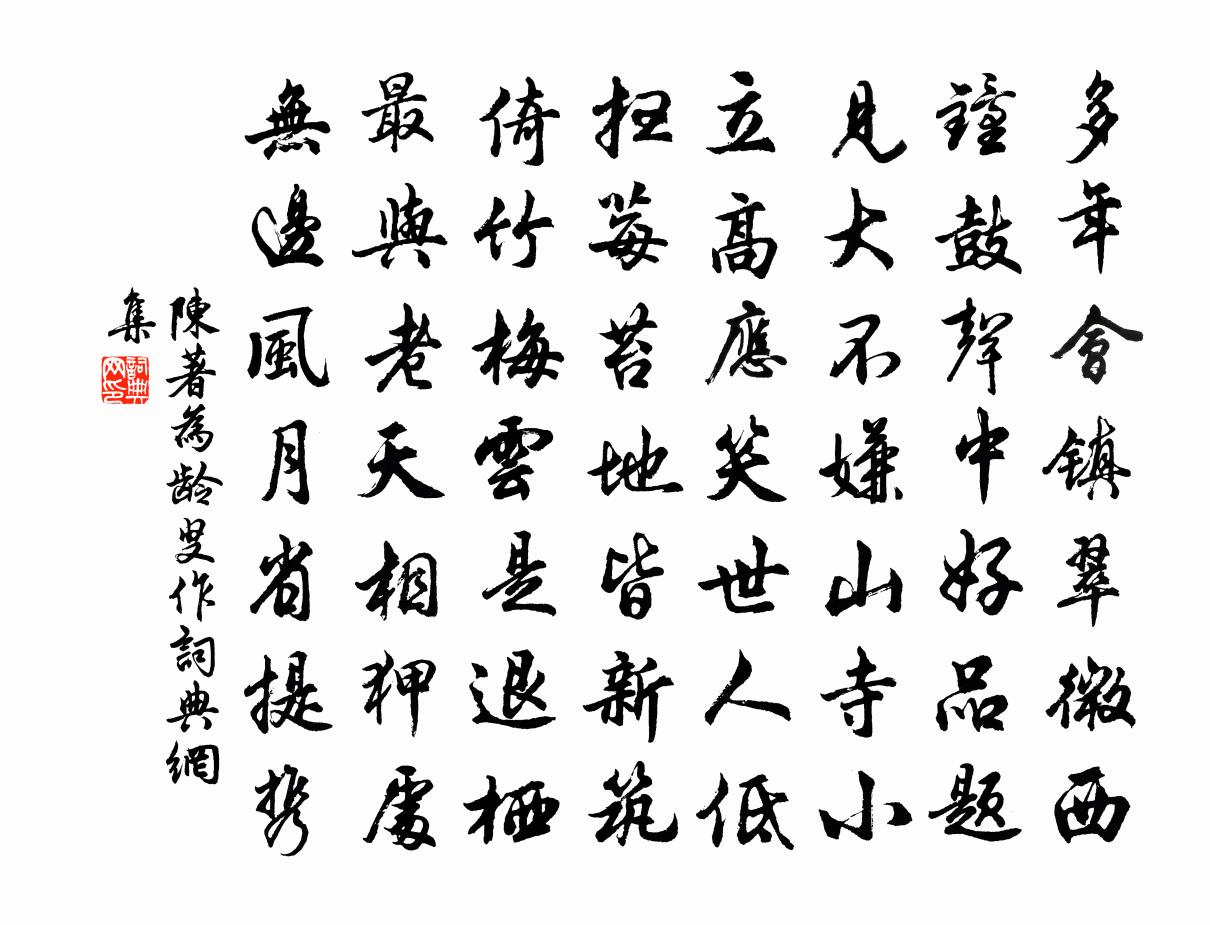 多年會鎮翠微西
鐘鼓聲中好品題
見大不嫌山寺小
立高應笑世人低
扫莓苔地皆新筑
倚竹梅雲是退栖
最與老天相狎處
無邊風月省提携
陳著為龄叟作詞典網
集
詞典
网印